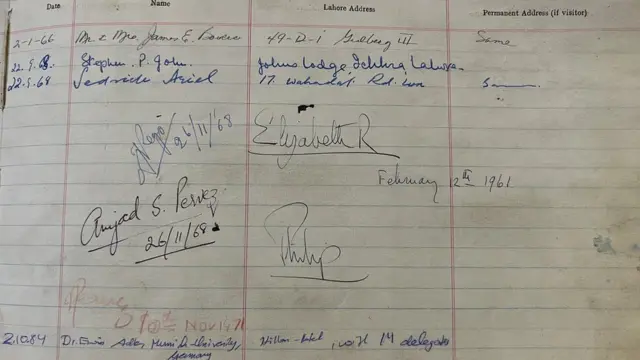 Date Name Lahore Address Permanent Address (if visitor)
2-1-66 Mr & Mrs. James E. 49-D-1 Gulberg III Same
22.5.68. Stephen. P. John. Johns Lodge, Ichhra, Lahore.
22.5.68 17. Wahadat Rd. Lhr
26/11/68
Elizabeth R
February 12th 1961
Amjad S. Pervez
26/11/68
Philip
10th NOV 1471
21084 Dr. Munich-University, Hilton-Hotel, with 14 delegates
Germany